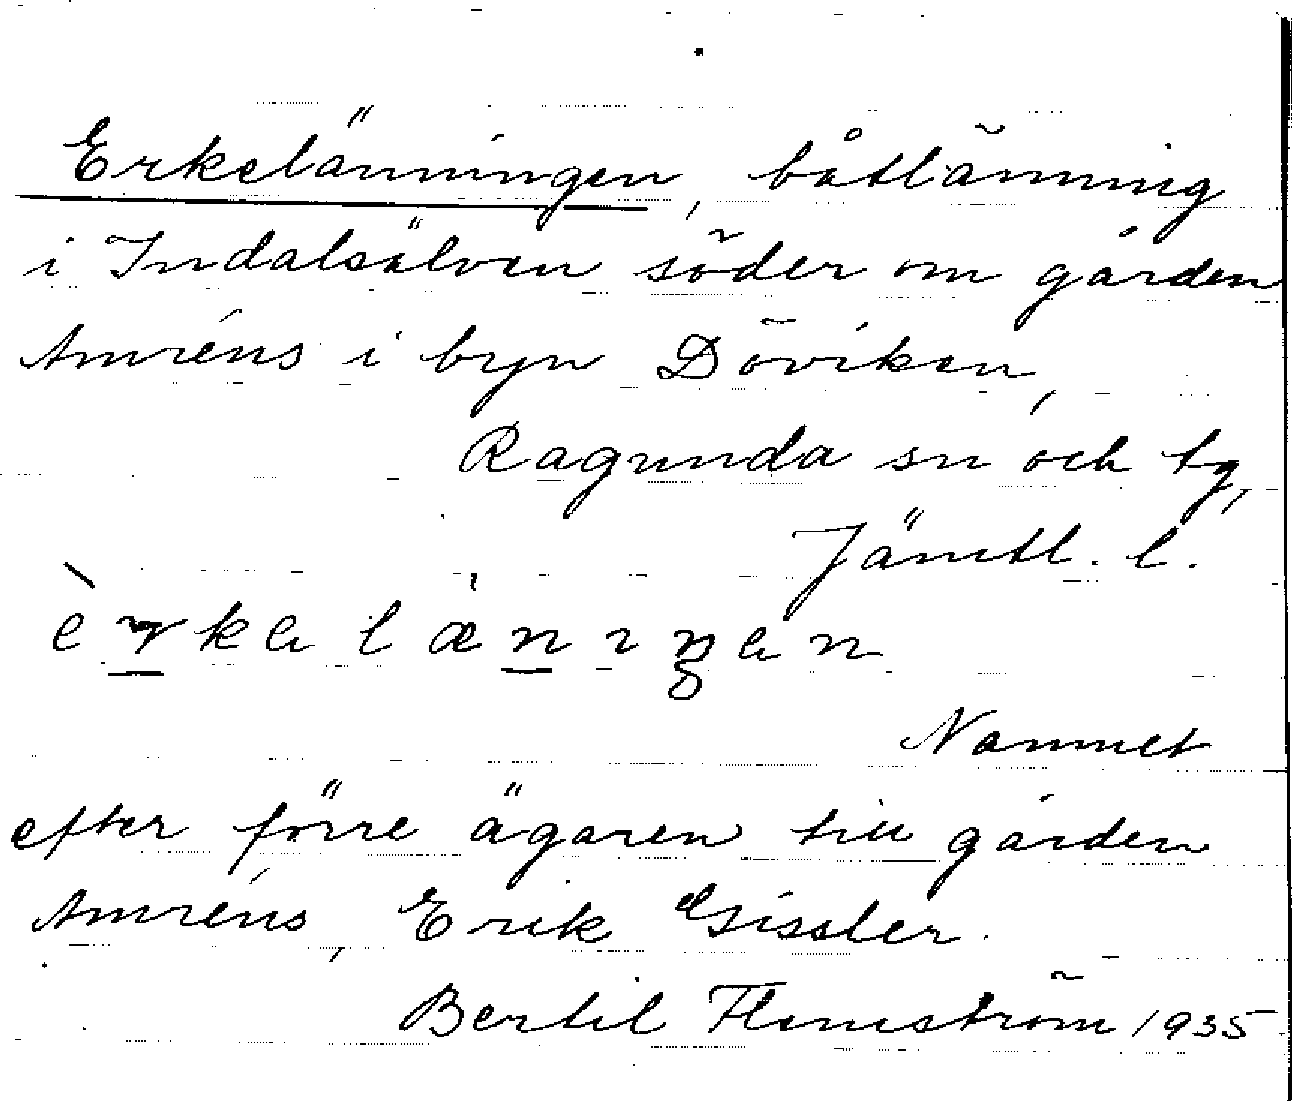 Erkelänningen, båtlänning
i Indalsälven söder om gården
Amréns i byn Döviken,
Ragunda sn och tg,
Jämtl. l.
èrkalæniŋan
Namnet
efter förre ägaren till gården
Amréns, Erik Gissler.
Bertil Flemström 1935